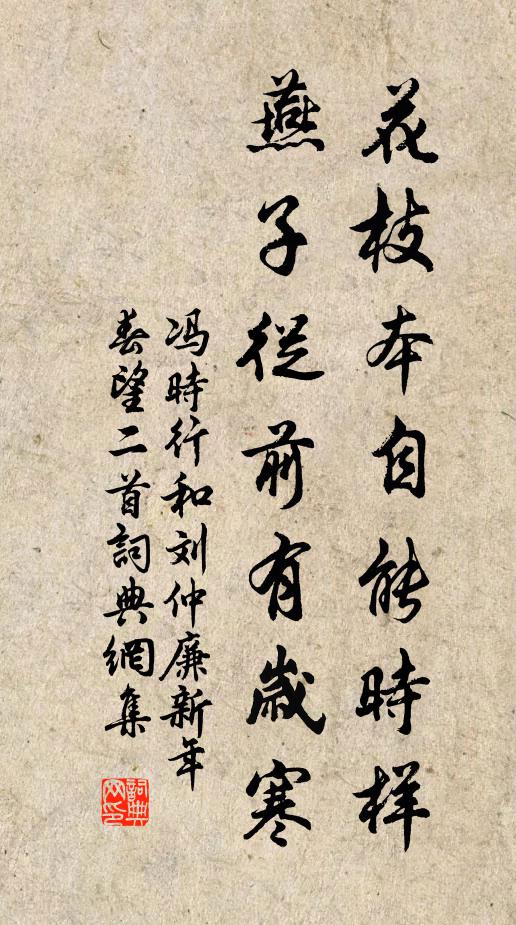 花枝本自能時样
燕子從前有歲寒
冯時行和刘仲廉新年
春望二首詞典網集
詞典网印